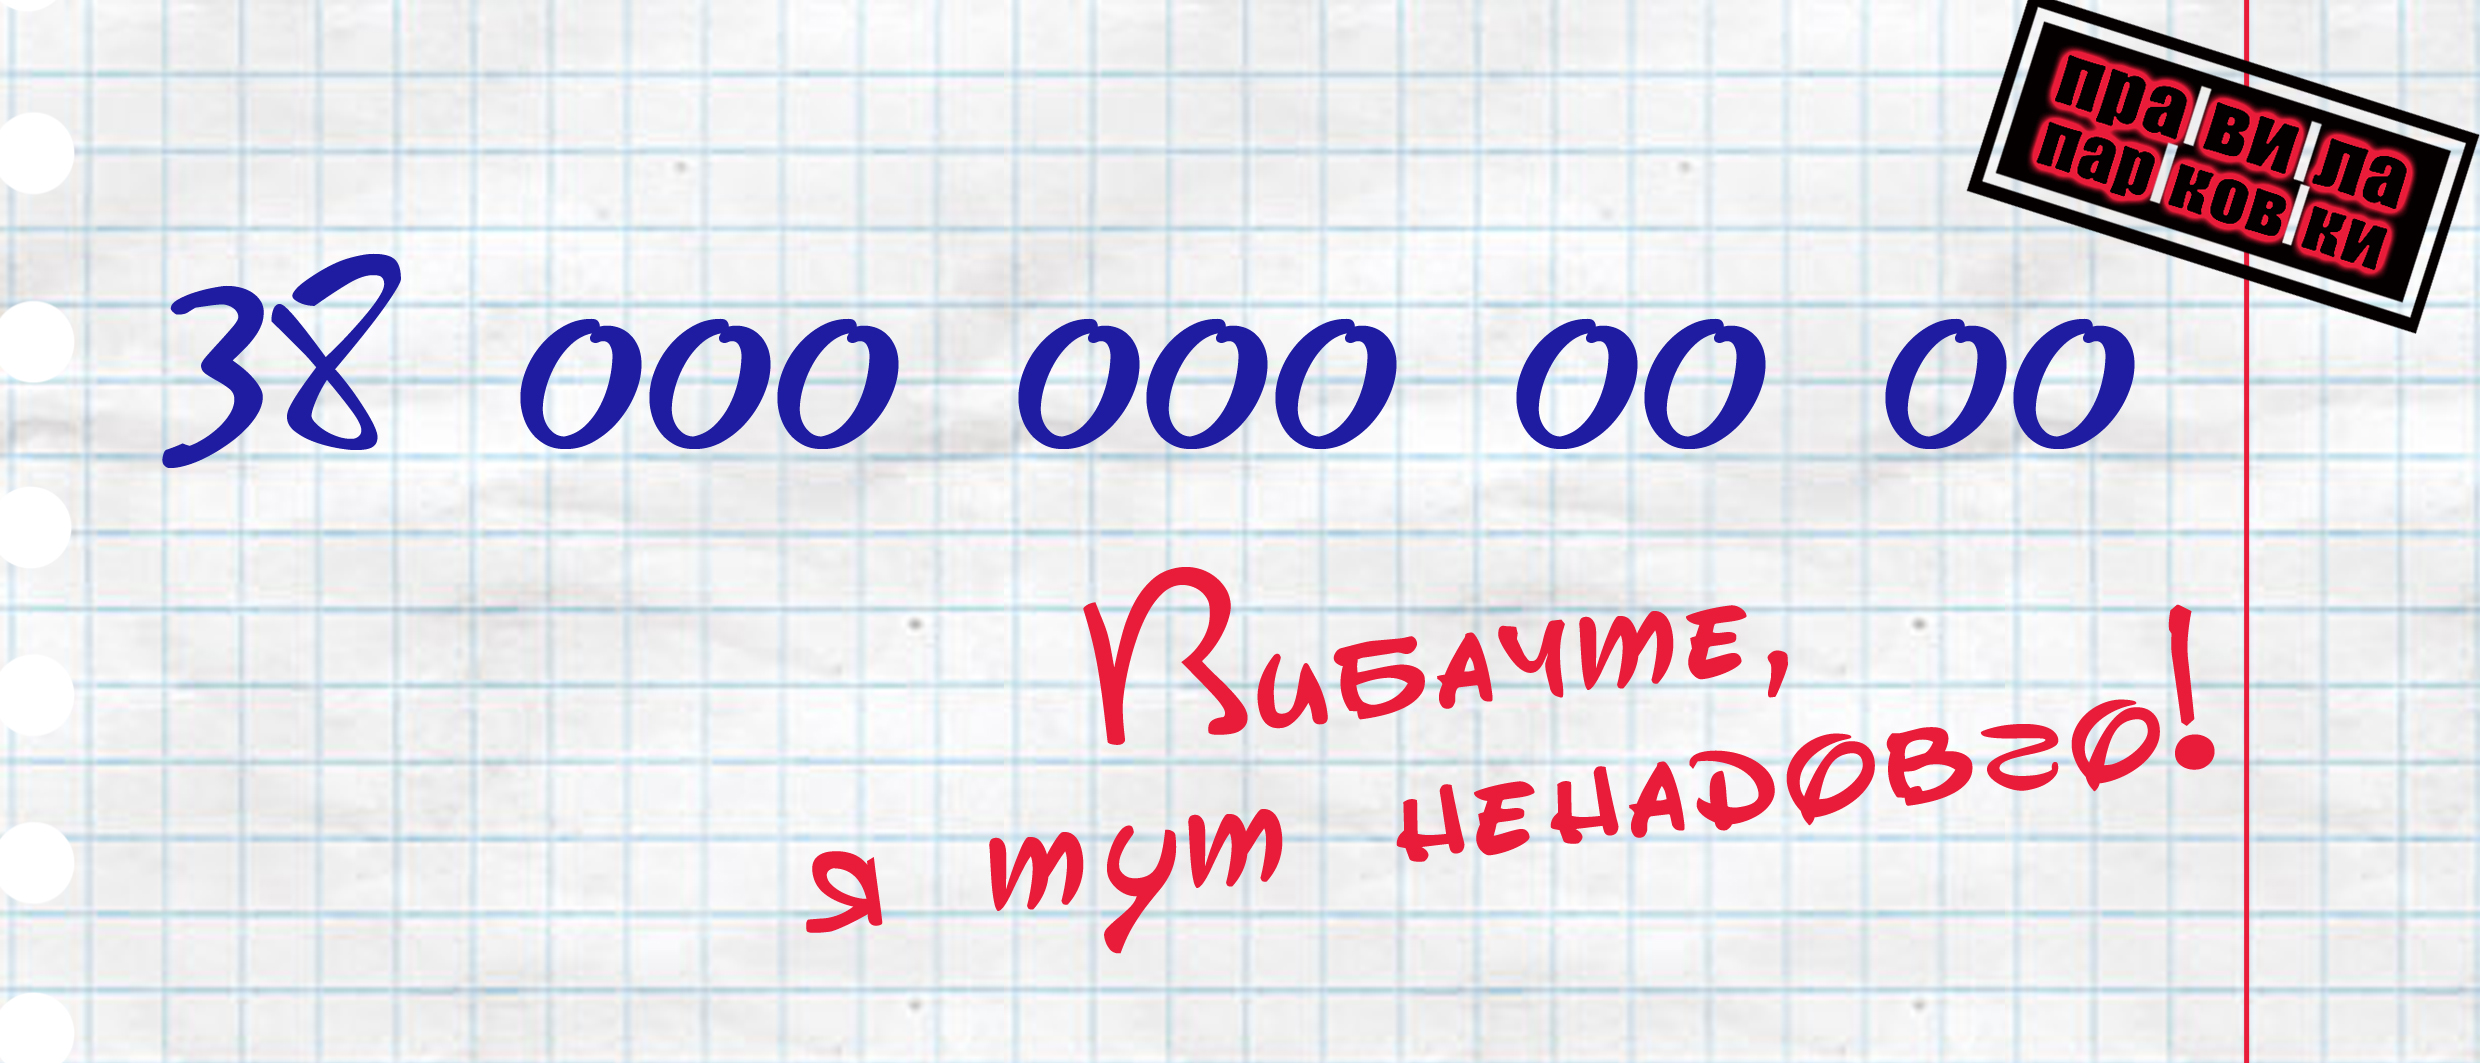 пра|ви|ла
пар|ков|ки
38 000 000 00 00
Вибачте,
я тут ненадовго!